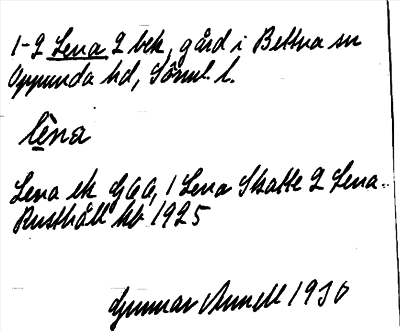 1-2 Lena 2 bek, gård i Bettna sn
Oppunda hd, Söml. l.
lèna
Lena ek GAA, 1 Lena Skatte 2 Lena-
Rusthåll kb 1925
Gunnar Annell 1930